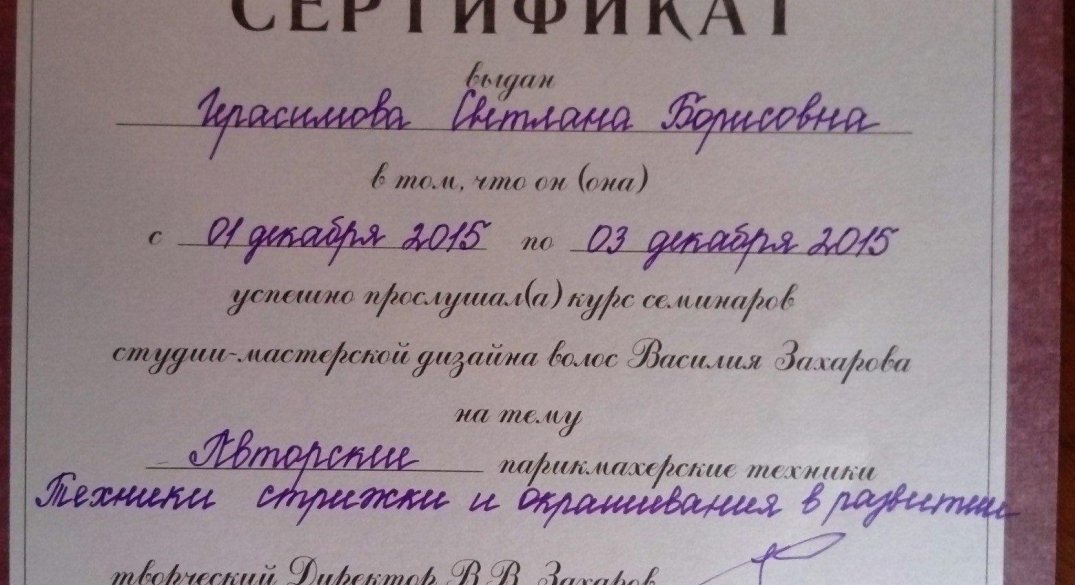 СЕРТИФИКАТ
выдан
Герасимова Светлана Борисовна
в том, что он (она)
с 01 декабря 2015 по 03 декабря 2015
успешно прослушал(а) курс семинаров
студии-мастерской дизайна волос Василия Захарова
на тему
Авторские парикмахерские техники
Техники стрижки и окрашивания в развитии
творческий Директор В.В. Захаров